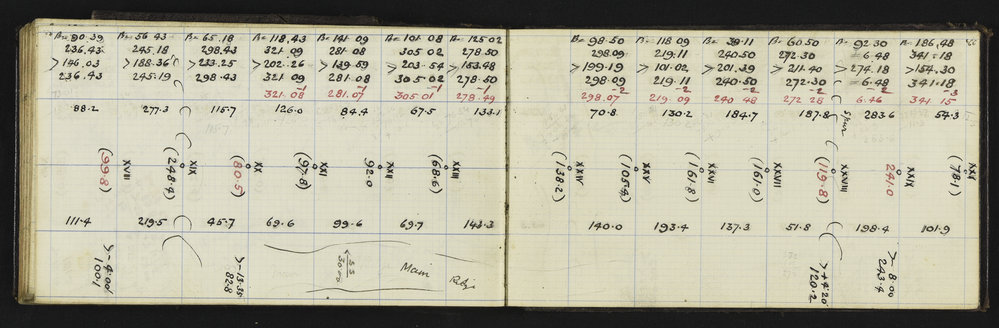 B= 90.39 B= 56.43 B= 65.18 B= 118.43 B= 141.09 B= 101.08 B= 125.02
236.43 245.18 298.43 321.09 281.08 305.02 278.50
>146.03 >188.36 >233.25 >202.26 >139.59 >203.54 >153.48
236.43 245.19 298.43 321.09 281.08 305.02 278.50
-1 -1 -1
321.08 281.07 305.01 278.49
88.2 277.3 115.7 126.0 84.4 67.5 133.1
115.7
XVIII XIX XX XXI XXII XXIII
(99.8) (248.4) (80.5) (97.8) 92.0 (68.6)
111.4 219.5 45.7 69.6 99.6 69.7 143.3
>-4.00
100.1
>-13.35
82.8
Main
B= 98.50 B= 118.09 B= 39.11 B= 60.50 B= 92.30 B= 186.48
298.09 219.11 240.50 272.30 6.48 341.18
>199.19 >101.02 >201.39 >211.40 >274.18 >154.30
298.09 219.11 240.50 272.30 =6.48 341.18
-2 -2 -2 -2 -2 -3
298.07 219.09 240.48 272.28 6.46 341.15
70.8 130.2 184.7 187.8 Spur 283.6 54.3
XXIV XXV XXVI XXVII XXVIII XXIX XXX
(138.2) (105.4) (161.8) (161.0) (119.8) 241.0 (78.1)
140.0 193.4 137.3 51.8 198.4 101.9
>+4.20
120.2
>-8.00
243.4